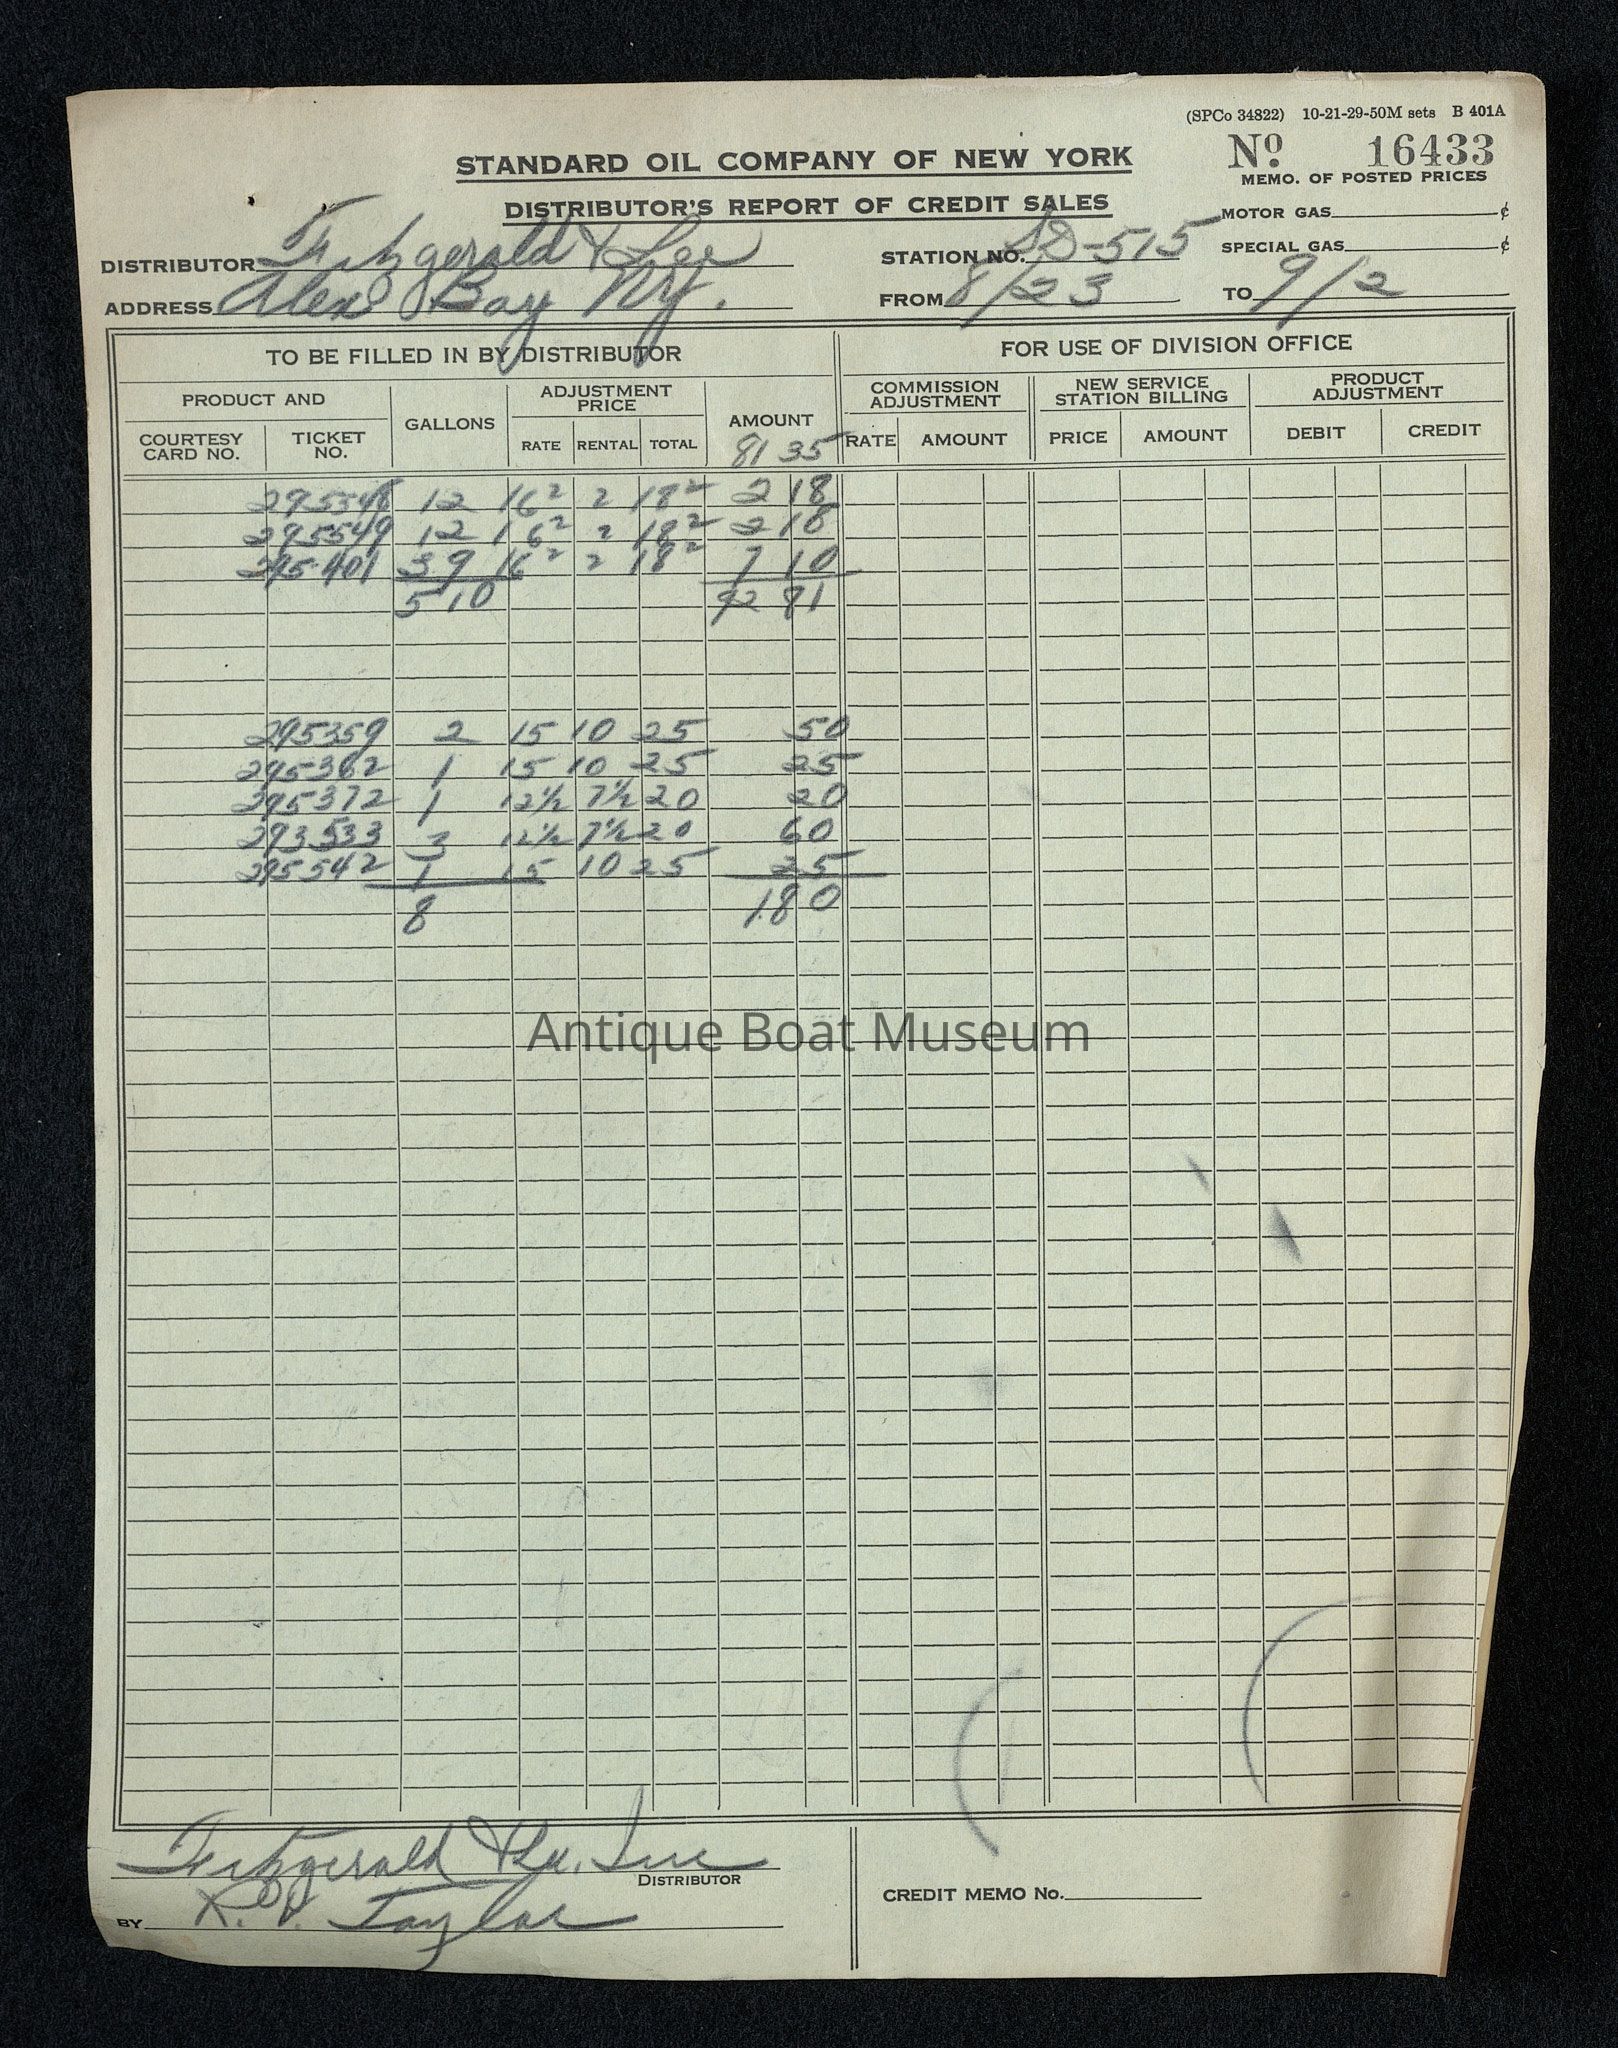 (SPCo 34822) 10-21-29-50M sets B 401A
STANDARD OIL COMPANY OF NEW YORK
No 16433
MEMO. OF POSTED PRICES
DISTRIBUTOR'S REPORT OF CREDIT SALES
MOTOR GAS ¢
DISTRIBUTOR Fitzgerald & Lee STATION NO. SD-515 SPECIAL GAS ¢
ADDRESS Alex Bay NY. FROM 8/23 TO 9/2
TO BE FILLED IN BY DISTRIBUTOR FOR USE OF DIVISION OFFICE
PRODUCT AND GALLONS ADJUSTMENT PRICE AMOUNT COMMISSION ADJUSTMENT NEW SERVICE STATION BILLING PRODUCT ADJUSTMENT
COURTESY CARD NO. TICKET NO. RATE RENTAL TOTAL RATE AMOUNT PRICE AMOUNT DEBIT CREDIT
81 35
295548 12 16² 2 18² 2 18
295549 12 16² 2 18² 2 18
295401 39 16² 2 18² 7 10
510 92 81
295359 2 15 10 25 50
295362 1 15 10 25 25
295372 1 12½ 7½ 20 20
293533 3 12½ 7½ 20 60
295542 1 15 10 25 25
8 1.80
Antique Boat Museum
Fitzgerald & Lee, Inc
DISTRIBUTOR
CREDIT MEMO No.
BY Taylor